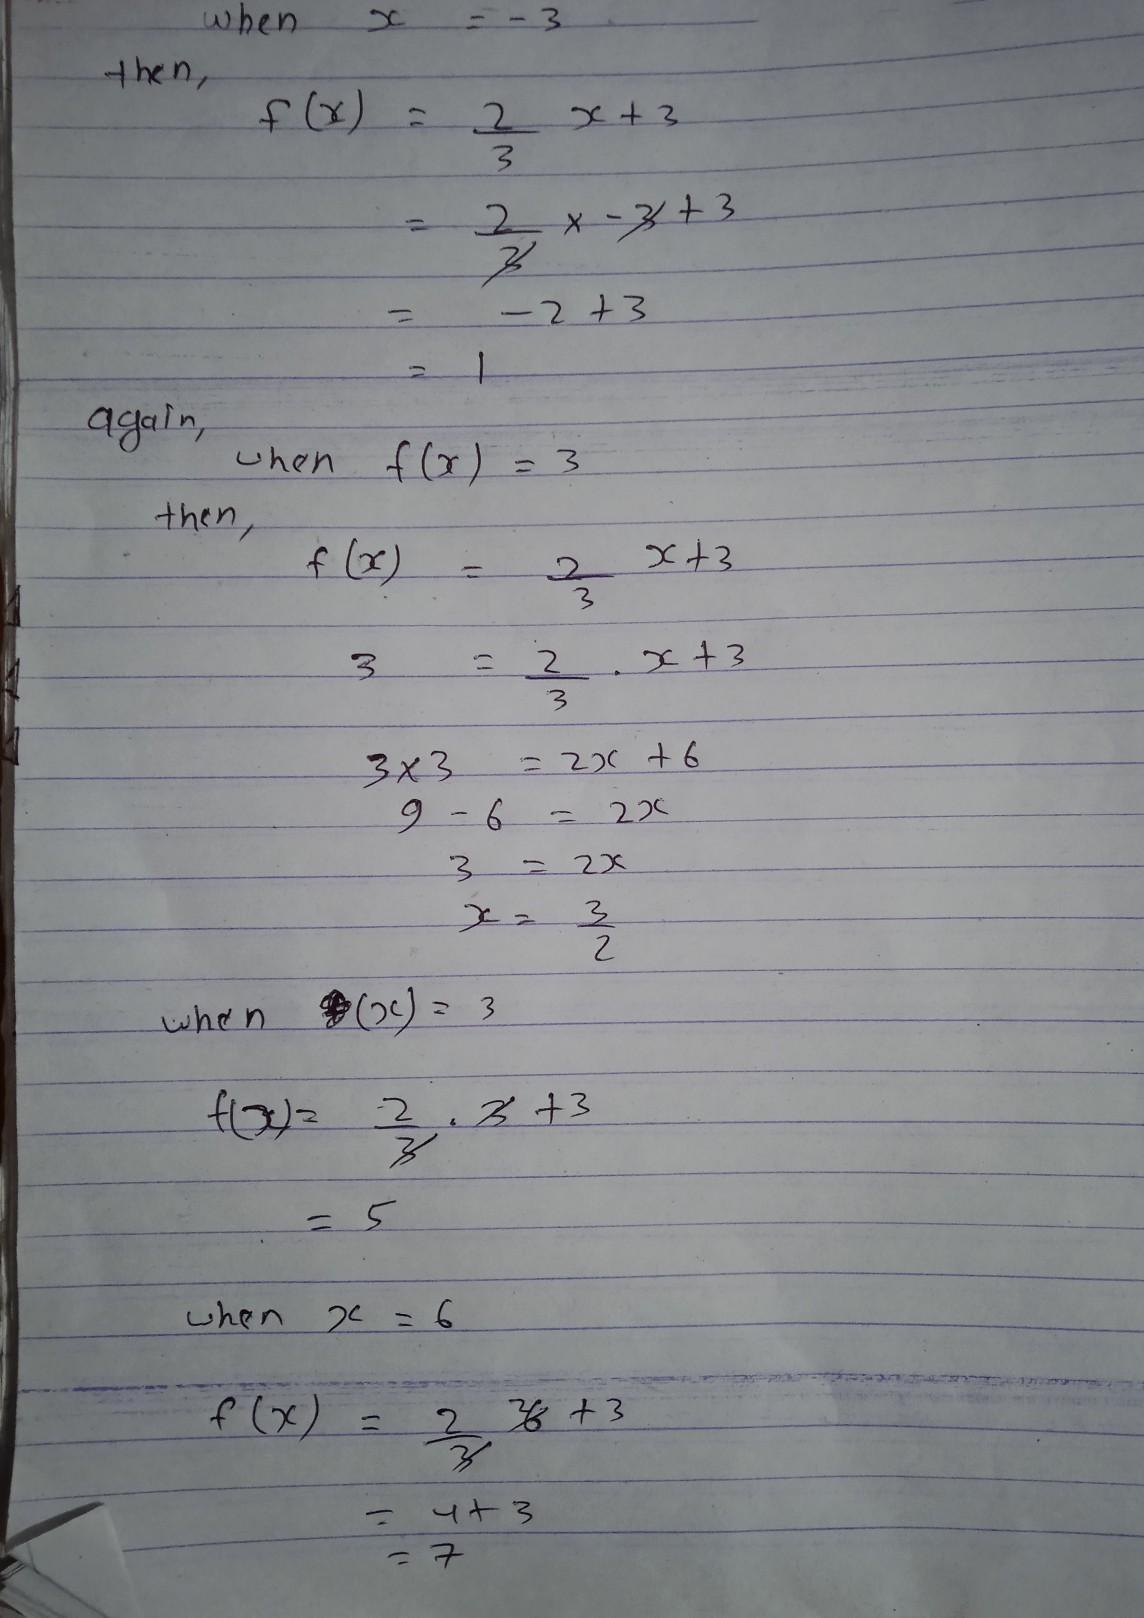 when x = -3
then,
f(x) = 2/3 x + 3
= 2/3 x -3 + 3
= -2 + 3
= 1
again,
when f(x) = 3
then,
f(x) = 2/3 x + 3
3 = 2/3 . x + 3
3 x 3 = 2x + 6
9 - 6 = 2x
3 = 2x
x = 3/2
when (x) = 3
f(x) = 2/3 . 3 + 3
= 5
when x = 6
f(x) = 2/3 6 + 3
= 4 + 3
= 7